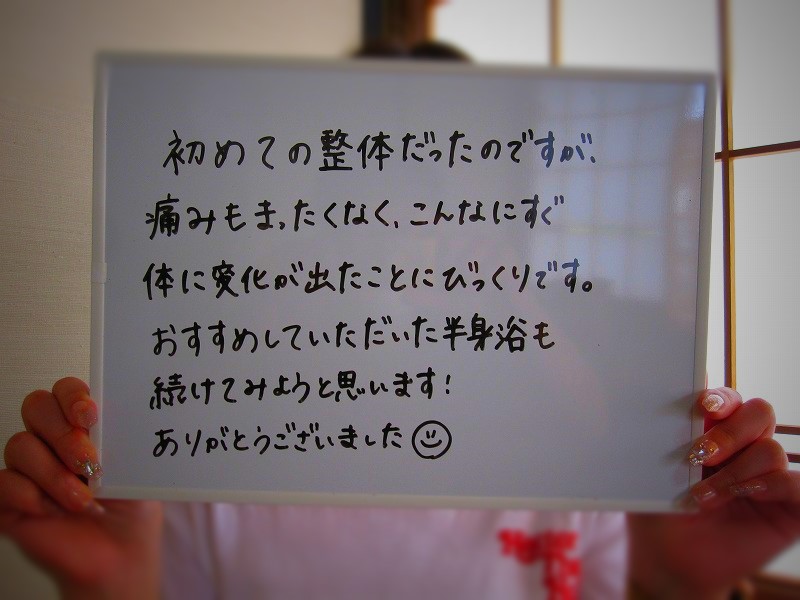 初めての整体だったのですが、
痛みもまったくなく、こんなにすぐ
体に変化が出たことにびっくりです。
おすすめしていただいた半身浴も
続けてみようと思います!
ありがとうございました